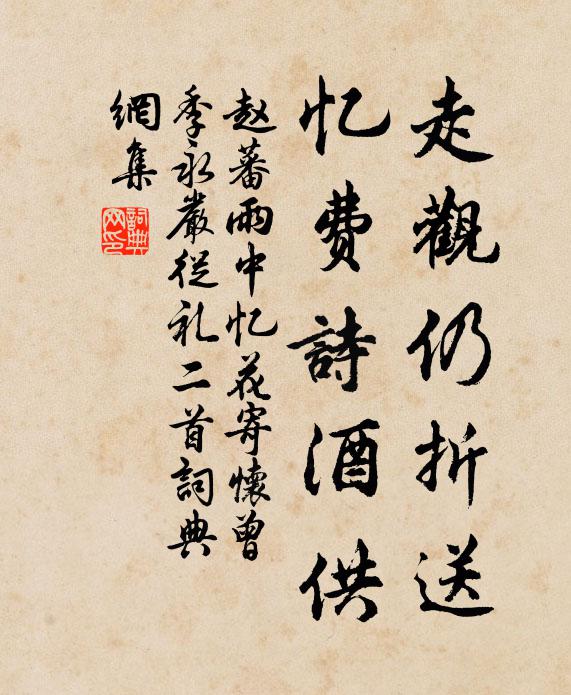 走觀仍折送
忆費詩酒供
赵蕃雨中忆花寄懷曾
季永嚴從礼二首詞典
網集
詞典
网印